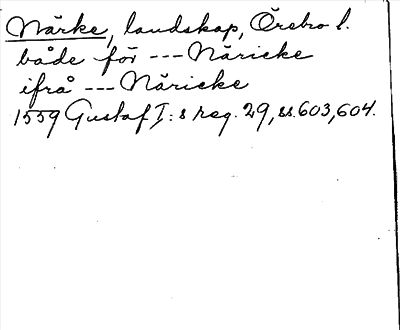 Närke, landskap, Örebro l.
både för --- Näricke
ifrå --- Näricke
1559 Gustaf I:s reg. 29, ss. 603, 604.